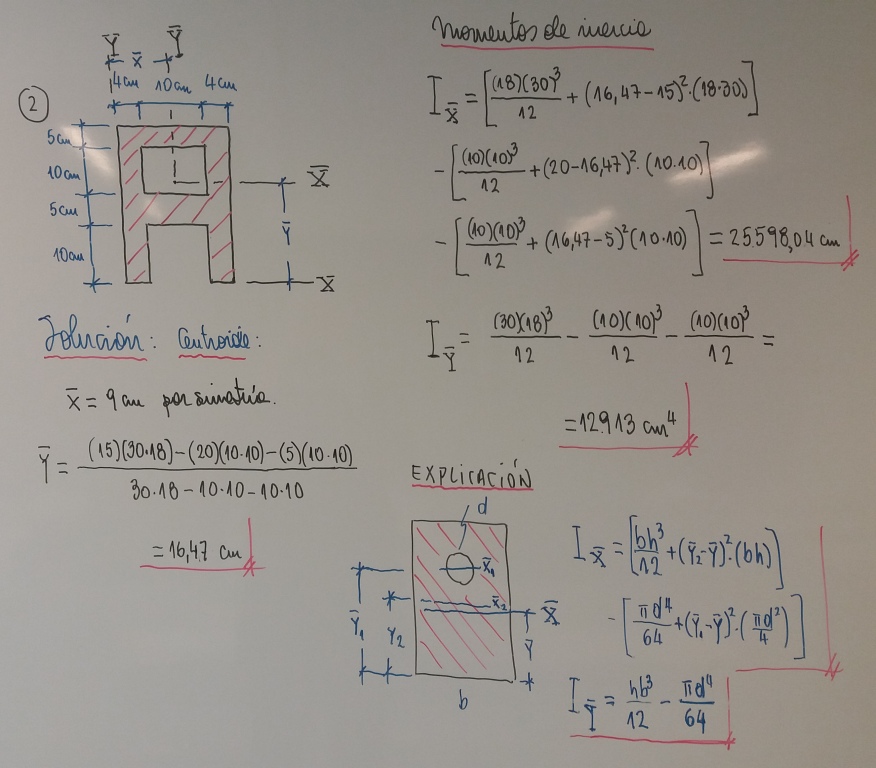 ②
Ȳ Ȳ
X̄
4cm 10cm 4cm
5cm
10cm
5cm
10cm
X̄
Ȳ
X̄
Solución: Centroide:
X̄ = 9 cm por simetría.
Ȳ = (15)(30·18)-(20)(10·10)-(5)(10·10) / 30·18-10·10-10·10
= 16,47 cm
Momentos de inercia
I_X̄ = [(18)(30)³/12 + (16,47-15)²·(18·30)]
- [(10)(10)³/12 + (20-16,47)²·(10·10)]
- [(10)(10)³/12 + (16,47-5)²(10·10)] = 25.598,04 cm
I_Ȳ = (30)(18)³/12 - (10)(10)³/12 - (10)(10)³/12 =
= 12913 cm⁴
EXPLICACIÓN
d
x̄₁
x̄₂
X̄
Ȳ₁
Y₂
Ȳ
b
I_X̄ = [bh³/12 + (Ȳ₂-Ȳ)²·(bh)]
- [πd⁴/64 + (Ȳ₁-Ȳ)²·(πd²/4)]
I_Ȳ = hb³/12 - πd⁴/64